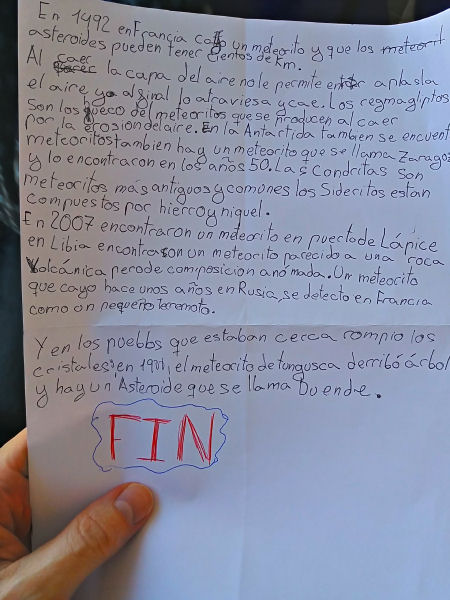 En 1492 en Francia cayo un meteorito y que los meteorit
asteroides pueden tener cientos de km.
Al caer la capa del aire no le permite entrar aplasla
el aire y al ginal lo atraviesa y cae. Los regmagliptos
son los hueco del meteoritos que se producen al caer
por la erosion del aire. En la Antartida tambien se encuent
meteoritos tambien hay un meteorito que se llama Zaragoz
y lo encontraron en los años 50. Las Condritas son
meteoritos más antiguos y comunes los Sideritos estan
compuestos por hierro y niquel.
En 2007 encontraron un meteorito en puerto de Lápice
en Libia encontraron un meteorito parecido a una roca
Volcánica pero de composicion anómada. Un meteorito
que cayo hace unos años en Rusia, se detecto en Francia
como un pequeño terremoto.
Y en los pueblos que estaban cerca rompio los
cristales, en el meteorito de tungusca derribó árbol
y hay un Asteroide que se llama Duende.
FIN